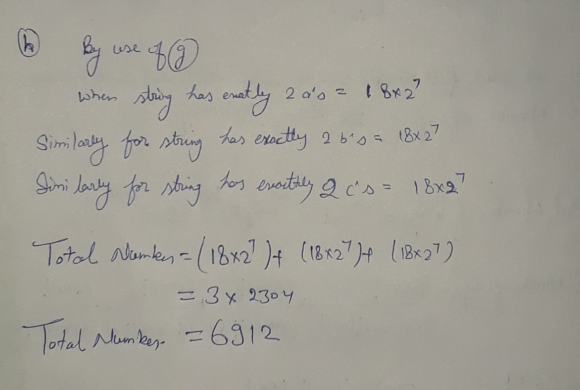 (h) By use of (g)
when string has exactly 2 a's = 18×2⁷
Similarly for string has exactly 2 b's = 18×2⁷
Similarly for string has exactly 2 c's = 18×2⁷
Total Number = (18×2⁷)+ (18×2⁷)+ (18×2⁷)
= 3 × 2304
Total Number = 6912